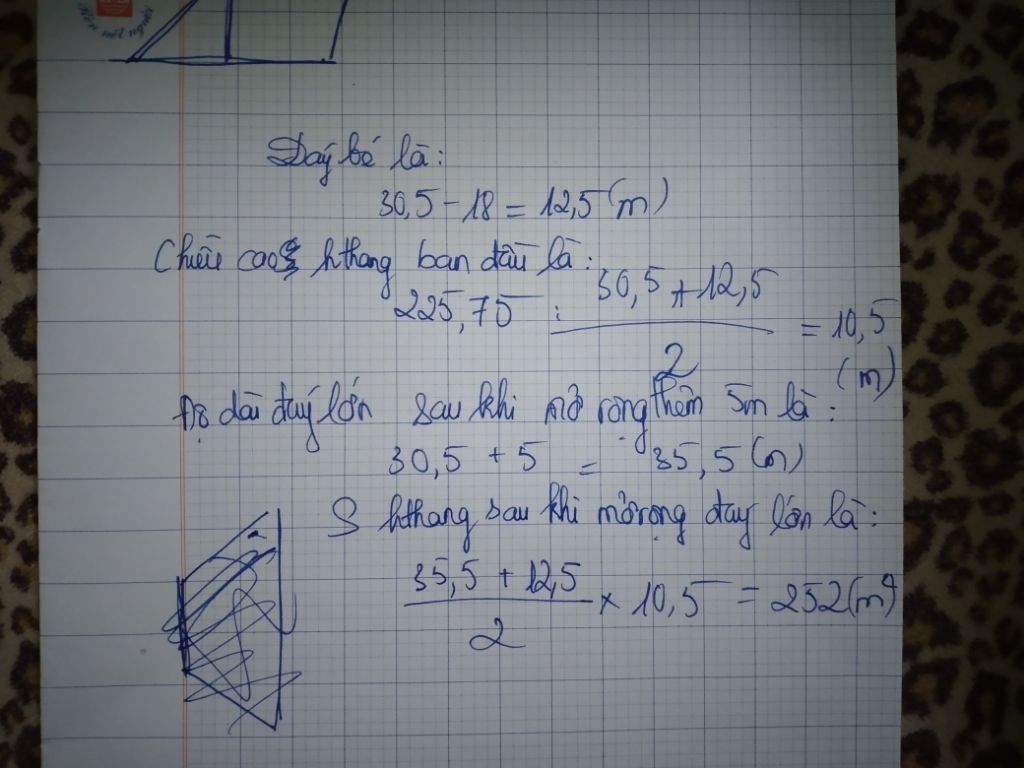 Nên một người
Đáy bé là:
30,5 - 18 = 12,5 (m)
Chiều cao hthang ban đầu là:
225,75 : (30,5 + 12,5)/2 = 10,5 (m)
Độ dài đáy lớn sau khi mở rộng thêm 5m là:
30,5 + 5 = 35,5 (m)
S hthang sau khi mở rộng đáy lớn là:
(35,5 + 12,5)/2 × 10,5 = 252 (m²)